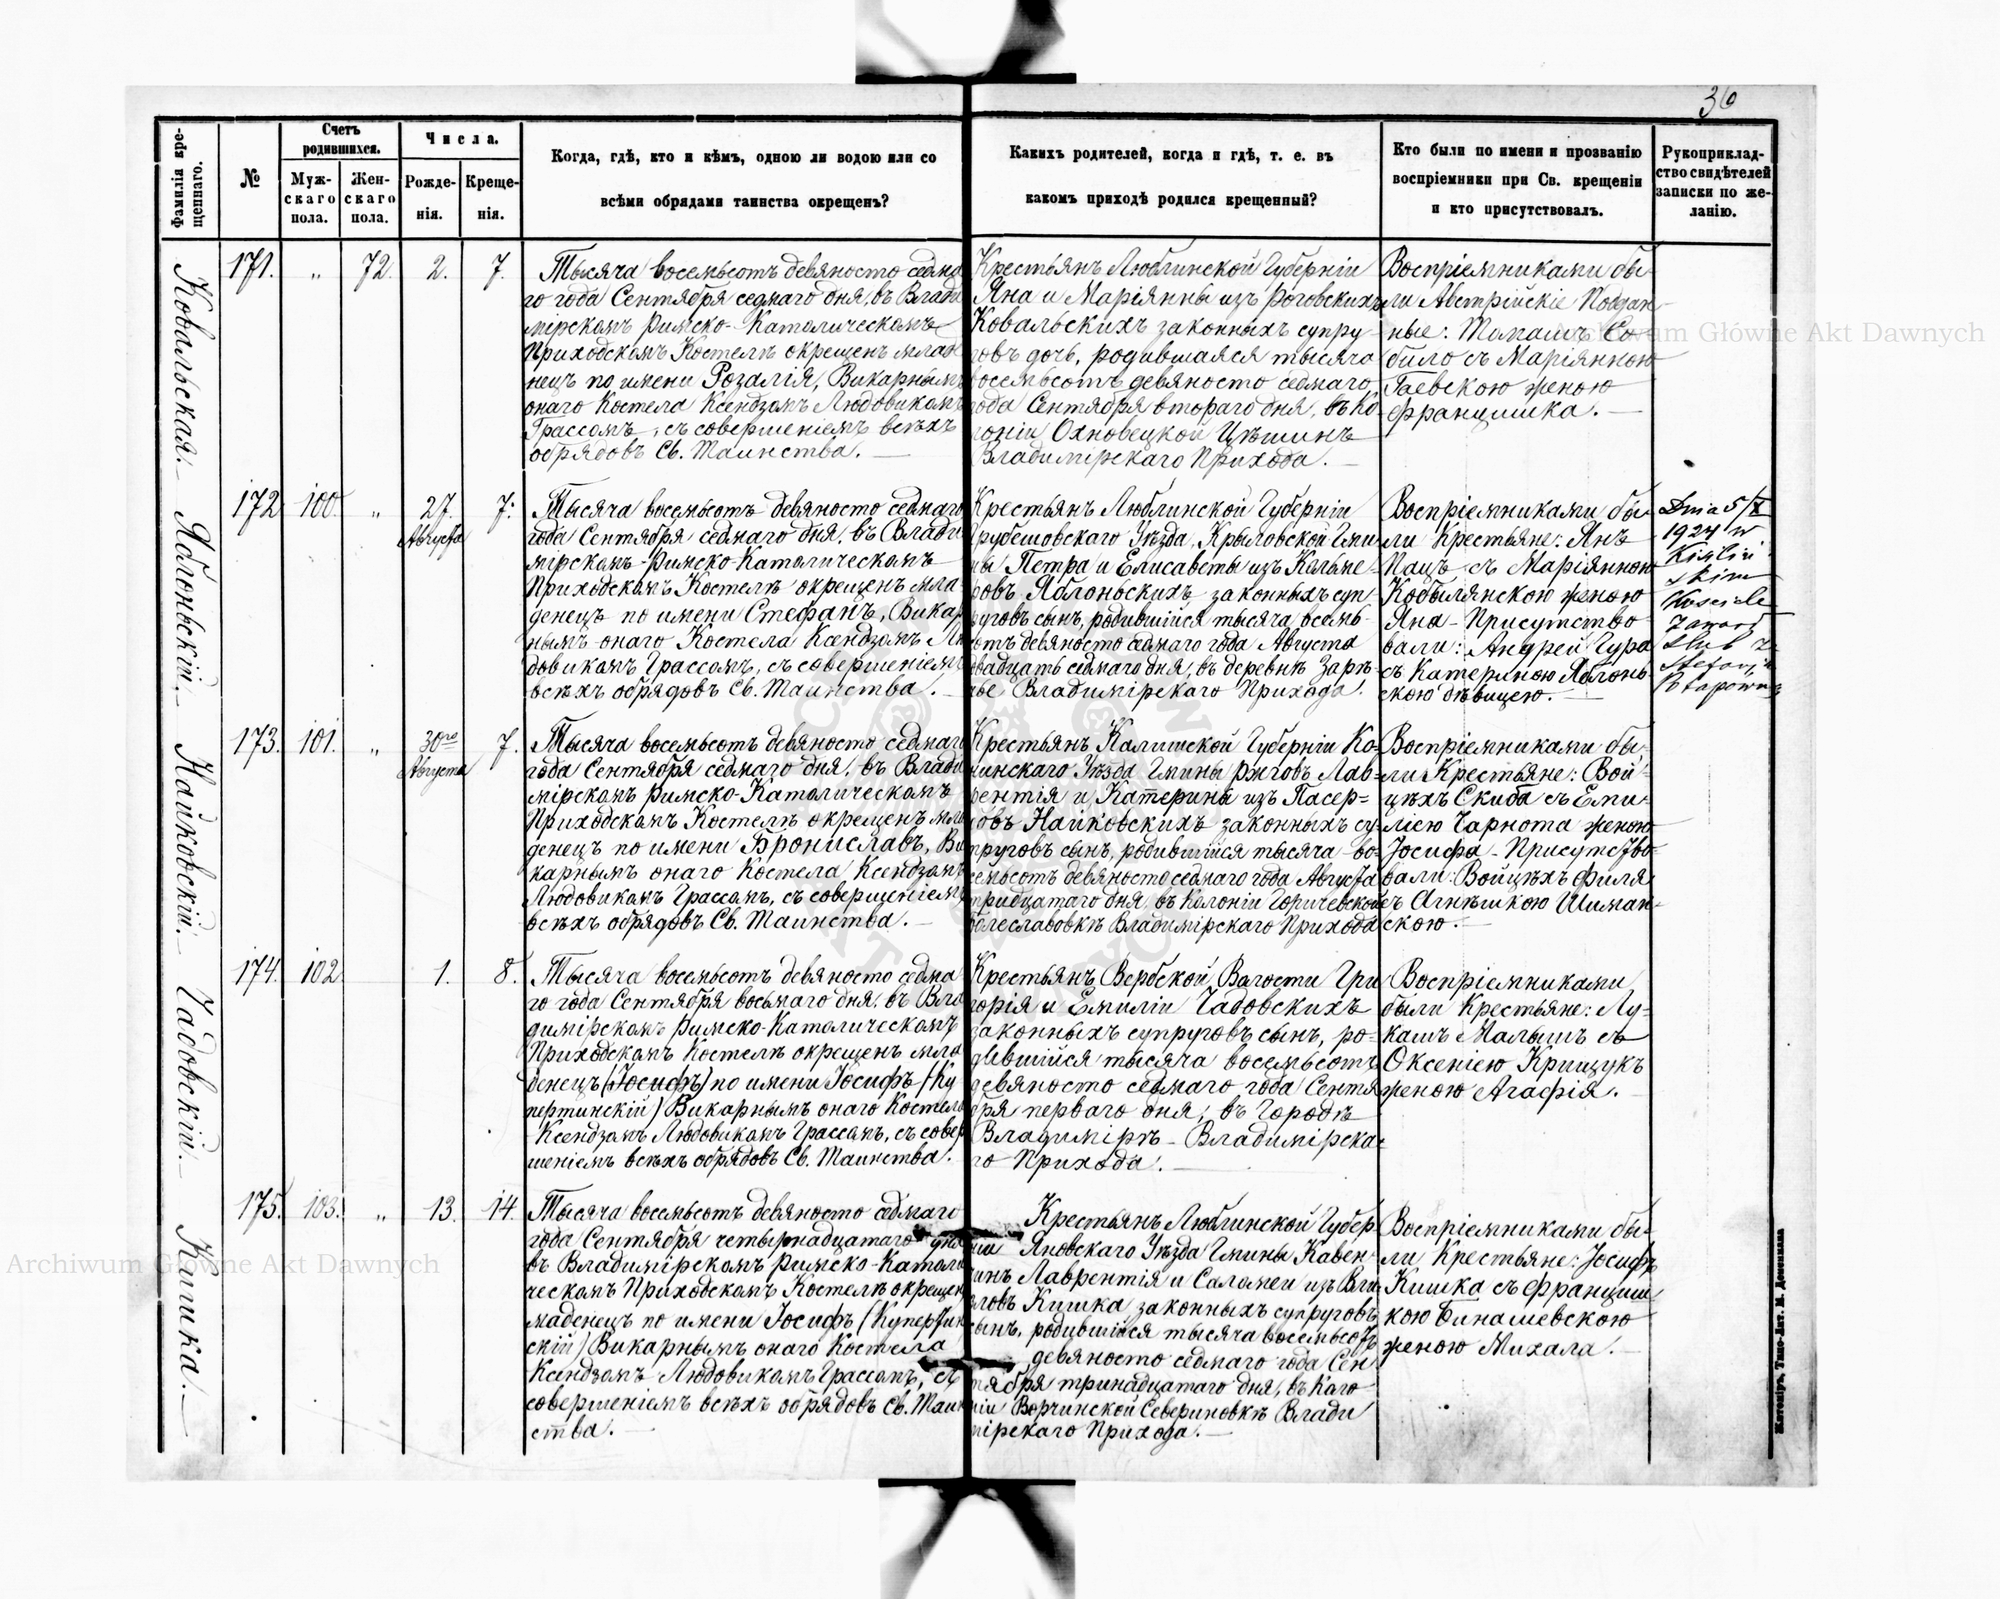 36
Фамилія кре-
щеннаго.
№
Счетъ
родившихся.
Муж-
скаго
пола.
Жен-
скаго
пола.
Числа.
Рожде-
нія.
Креще-
нія.
Когда, гдѣ, кто и кѣмъ, одною ли водою или со
всѣми обрядами таинства окрещенъ?
Какихъ родителей, когда и гдѣ, т. е. въ
какомъ приходѣ родился крещенный?
Кто были по имени и прозванію
воспріемники при Св. крещеніи
и кто присутствовалъ.
Рукоприклад-
ство свидѣтелей
записки по же-
ланію.
Ковальская.
171. „ 72. 2. 7.
Тысяча восемьсотъ девяносто седма
го года Сентября седмаго дня, въ Влади
мірскомъ Римско-Католическомъ
Приходскомъ Костелѣ окрещенъ млад
нецъ по имени Розалія, Викарнымъ
онаго Костела Ксендзомъ Людовикомъ
Грассомъ, съ совершеніемъ всѣхъ
обрядовъ Св. Таинства. —
Крестьянъ Люблинской Губерніи
Яна и Маріянны изъ Роговскихъ
Ковальскихъ законныхъ супру-
говъ дочь, родившаяся тысяча
восемьсотъ девяносто седмаго
года Сентября втораго дня, въ Ко
лоніи Охновецкой Цѣшинъ
Владимірскаго Прихода. —
Воспріемниками бы-
ли Австрійскіе Поддан-
ные: Томашъ Со-
било съ Маріянною
Гаевскою женою
Францишка. —
Яблоньскій.
172 100. „ 27. Августа 7.
Тысяча восемьсотъ девяносто седмаго
года Сентября седмаго дня, въ Влади
мірскомъ Римско-Католическомъ
Приходскомъ Костелѣ окрещенъ мла-
денецъ по имени Стефанъ, Викар
нымъ онаго Костела Ксендзомъ Лю
довикомъ Грассомъ, съ совершеніемъ
всѣхъ обрядовъ Св. Таинства. —
Крестьянъ Люблинской Губерніи
Грубешовскаго Уѣзда, Крыловской Гми-
ны Петра и Елисаветы изъ Кальме-
ровъ Яблоньскихъ законныхъ суп-
руговъ сынъ, родившійся тысяча восемь-
сотъ девяносто седмаго года Августа
двадцать седмаго дня, въ деревнѣ Зарѣ-
чье Владимірскаго Прихода.
Воспріемниками бы-
ли Крестьяне: Янъ
Пацъ съ Маріянною
Кобылянскою женою
Яна - Присутство
вали: Андрей Гура
съ Катериною Яблонь
скою дѣвицею. —
Dnia 5/X
1924 w
Kisieliń
skim
Kościele
zawarł
ślub z
Stefanją
Potapówną
Найковскій.
173. 101. „ 30го Августа 7.
Тысяча восемьсотъ девяносто седмаго
года Сентября седмаго дня, въ Влади
мірскомъ Римско-Католическомъ
Приходскомъ Костелѣ окрещенъ мла
денецъ по имени Брониславъ, Ви
карнымъ онаго Костела Ксендзомъ
Людовикомъ Грассомъ, съ совершеніемъ
всѣхъ обрядовъ Св. Таинства. —
Крестьянъ Калишской Губерніи Ко-
нинскаго Уѣзда Гмины Ржговъ Лав-
рентія и Катерины изъ Пасер-
бовъ Найковскихъ законныхъ су-
пруговъ сынъ, родившійся тысяча во-
семьсотъ девяносто седмаго года Августа
тридцатаго дня, въ Колоніи Горичевской
Болеславовкѣ Владимірскаго Прихода
Воспріемниками бы-
ли Крестьяне: Вой-
цѣхъ Скиба съ Еми-
ліею Чарнота женою
Іосифа - Присутство-
вали: Войцѣхъ Филя
съ Агнѣшкою Шиман-
скою. —
Чадовскій.
174. 102. 1. 8.
Тысяча восемьсотъ девяносто седма
го года Сентября восьмаго дня, въ Вла
димірскомъ Римско-Католическомъ
Приходскомъ Костелѣ окрещенъ мла
денецъ (Іосифъ) по имени Іосифъ (Ку
пертинскій) Викарнымъ онаго Костела
Ксендзомъ Людовикомъ Грассомъ, съ совер
шеніемъ всѣхъ обрядовъ Св. Таинства.
Крестьянъ Вербской Волости Гри
горія и Емиліи Чадовскихъ
законныхъ супруговъ сынъ, ро-
дившійся тысяча восемьсотъ
девяносто седмаго года Сентя
бря перваго дня, въ Городѣ
Владимірѣ - Владимірска-
го Прихода. —
Воспріемниками
были Крестьяне: Лу-
кашъ Малышъ съ
Оксеніею Крищукъ
женою Агафія. —
Кишка.
175. 103. „ 13. 14.
Тысяча восемьсотъ девяносто седмаго
года Сентября четырнадцатаго дня
въ Владимірскомъ Римско-Католи
ческомъ Приходскомъ Костелѣ окрещен
младенецъ по имени Іосифъ (Купертин
скій) Викарнымъ онаго Костела
Ксендзомъ Людовикомъ Грассомъ, съ
совершеніемъ всѣхъ обрядовъ Св. Таин
ства. —
Крестьянъ Люблинской Губер-
ніи Яновскаго Уѣзда Гмины Кавен-
чинъ Лаврентія и Саломеи изъ
Кишка законныхъ супруговъ
сынъ, родившійся тысяча восемьсотъ
девяносто седмаго года Сен-
тября тринадцатаго дня, въ Коло
ніи Ворчинской Севериновкѣ Влади
мірскаго Прихода. —
Воспріемниками бы-
ли Крестьяне: Іосифъ
Кишка съ Францишк
кою Бинашевскою
женою Михала. —
Житомір, Типо-Лит. М. Дененмана
Archiwum Główne Akt Dawnych
Archiwum Główne Akt Dawnych